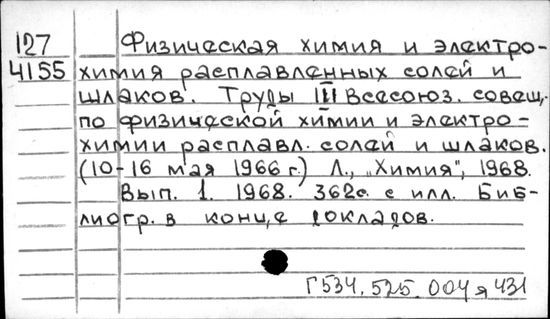 127 Физическая химия и электро-
4155 химия расплавленных солей и
шлаков. Труды III Всесоюз. совещ.
по физической химии и электро-
химии расплавл. солей и шлаков.
(10-16 мая 1966 г.) Л., „Химия", 1968.
Вып. 1. 1968. 362с. с илл. Биб-
лиогр. в конце докладов.
Г534.525.004я431